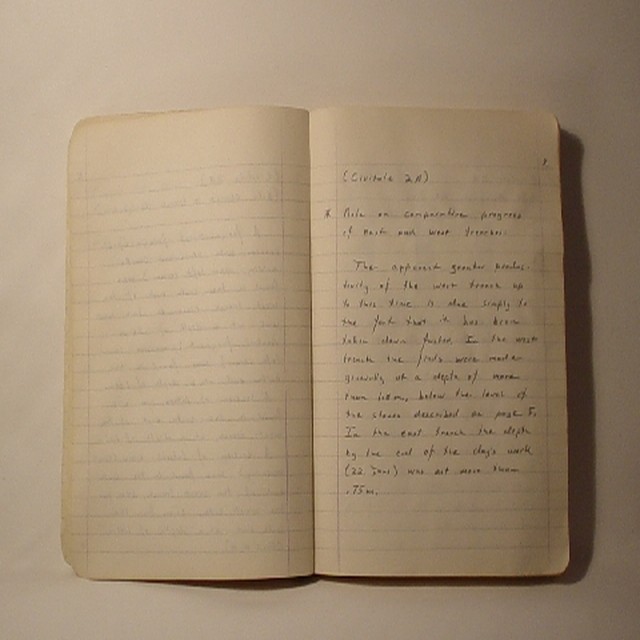 (Civitale 2A)
* Note on comparative progress
of East and West Trenches.
The apparent greater produc-
tivity of the west trench up
to this time is due simply to
the fact that it has been
taken down faster. In the west
trench the finds were made
generally at a depth of more
than 1.00m, below the level of
the stones described on page 5.
In the east trench the depth
by the end of the day's work
(22 June) was not more than
.75m.